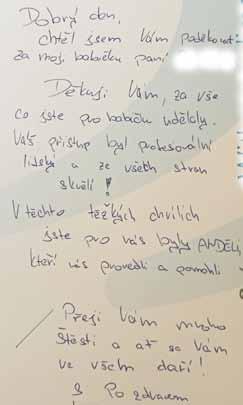 Dobrý den,
chtěl jsem Vám poděkovat
za moji babičku paní
Děkuji Vám, za vše
co jste pro babičku udělaly.
Váš přístup byl profesorální
lidský a ze všech stran
skvělí!
V těchto těžkých chvílích
jste pro nás byly ANDĚLI
kteří nás provedli a pomohli
Přeji Vám mnoho
štěstí a ať se Vám
ve všem daří!
S Pozdravem